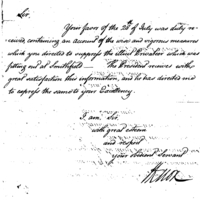 Sir.
Your favor of the 28th of July was duly
received, containing an account of the wise and vigorous measures
which you directed to suppress the illicit Privateer which was
fitting out at Smithfield — the President receives with
great satisfaction this information, and he has directed me
to express the same to your Excellency.
I am Sir,
with great esteem
and respect
your obedient Servant
HKnox